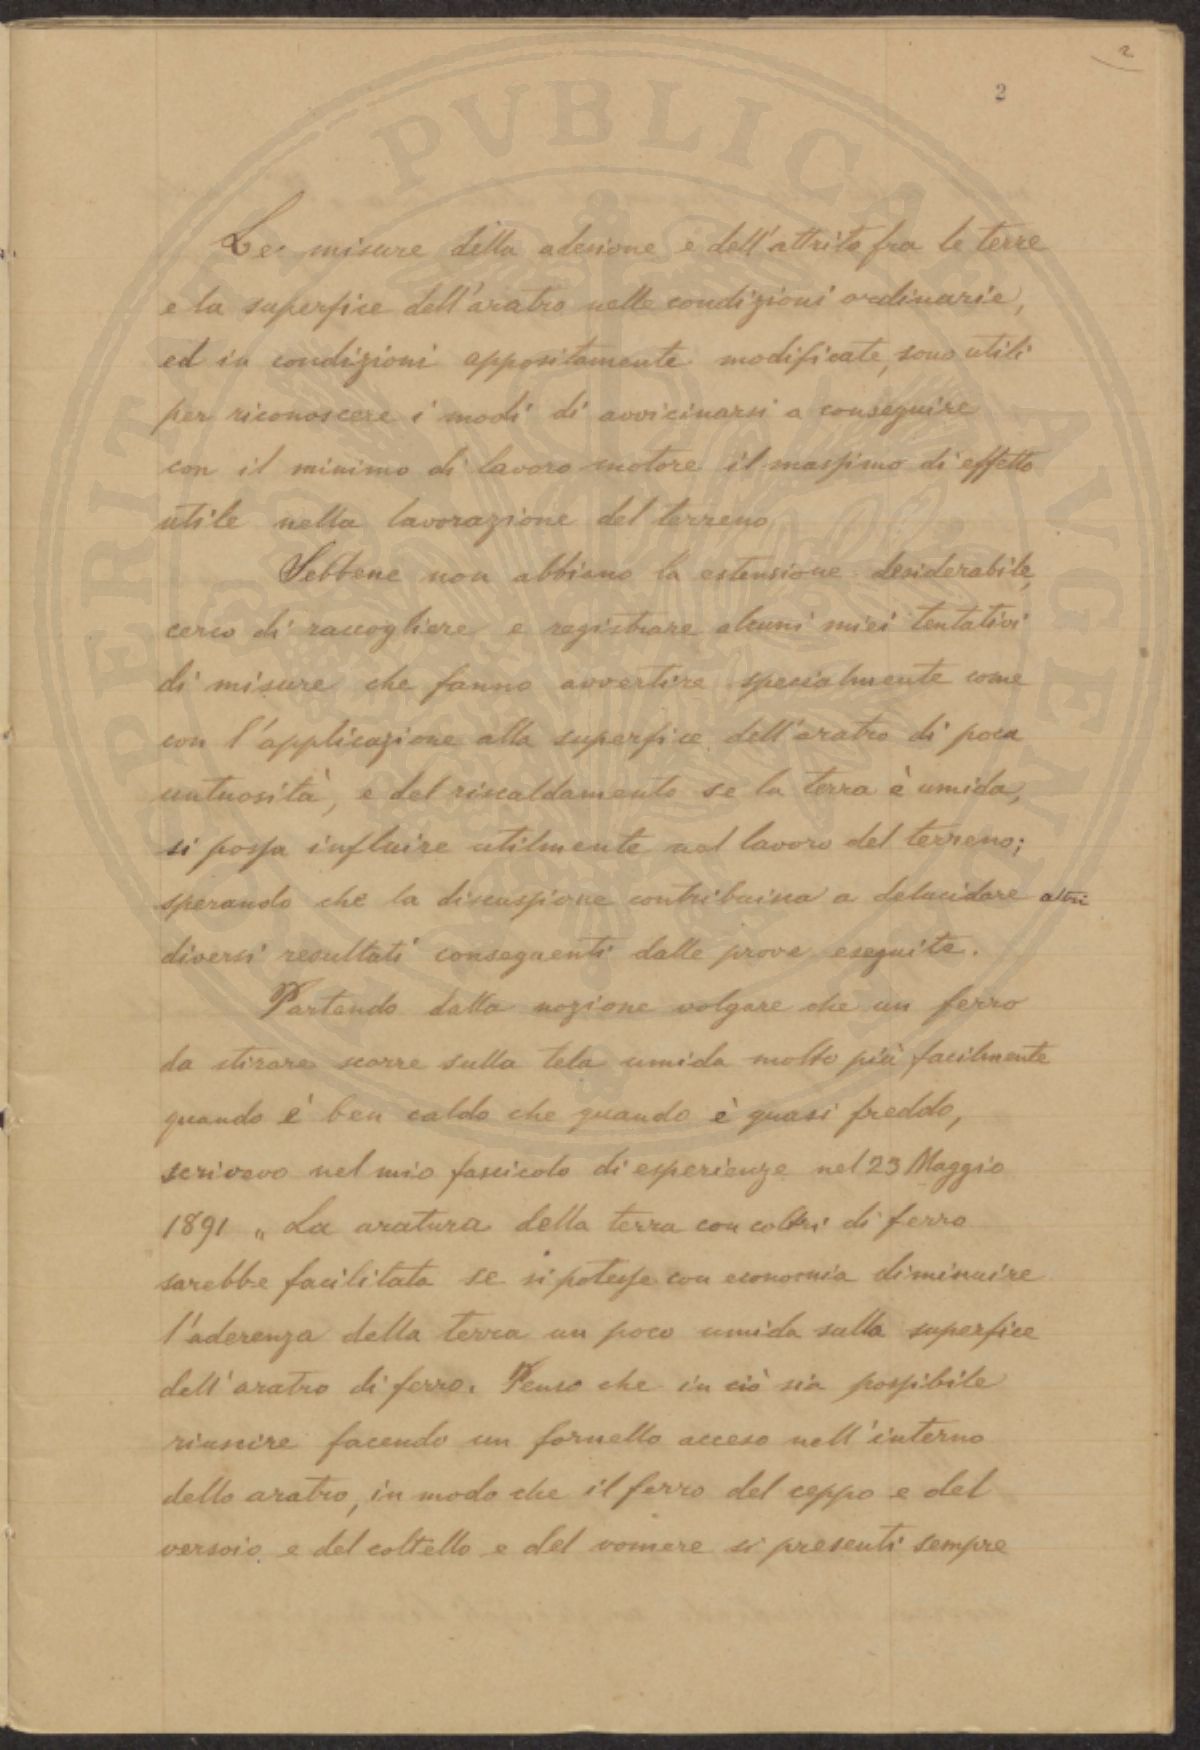 2
2
Le misure della adesione e dell'attrito fra le terre
e la superfice dell'aratro nelle condizioni ordinarie,
ed in condizioni appositamente modificate, sono utili
per riconoscere i modi di avvicinarsi a conseguire
con il minimo di lavoro motore il massimo di effetto
utile nella lavorazione del terreno
Sebbene non abbiano la estensione desiderabile,
cerco di raccogliere e registrare alcuni miei tentativi
di misure che fanno avvertire specialmente come
con l'applicazione alla superfice dell'aratro di poca
untuosità, e del riscaldamento se la terra è umida,
si possa influire utilmente nel lavoro del terreno;
sperando che la discussione contribuisca a delucidare altri
diversi resultati conseguenti dalle prove eseguite.
Partendo dalla nozione volgare che un ferro
da stirare scorre sulla tela umida molto più facilmente
quando è ben caldo che quando è quasi freddo,
scrivevo nel mio fascicolo di esperienze nel 23 Maggio
1891 „ La aratura della terra con coltri di ferro
sarebbe facilitata se si potesse con economia diminuire
l'aderenza della terra un poco umida sulla superfice
dell'aratro di ferro. Penso che in ciò sia possibile
riuscire facendo un fornello acceso nell'interno
dello aratro, in modo che il ferro del ceppo e del
versoio e del coltello e del vomere si presenti sempre
PUBLICAE AUGENDAE